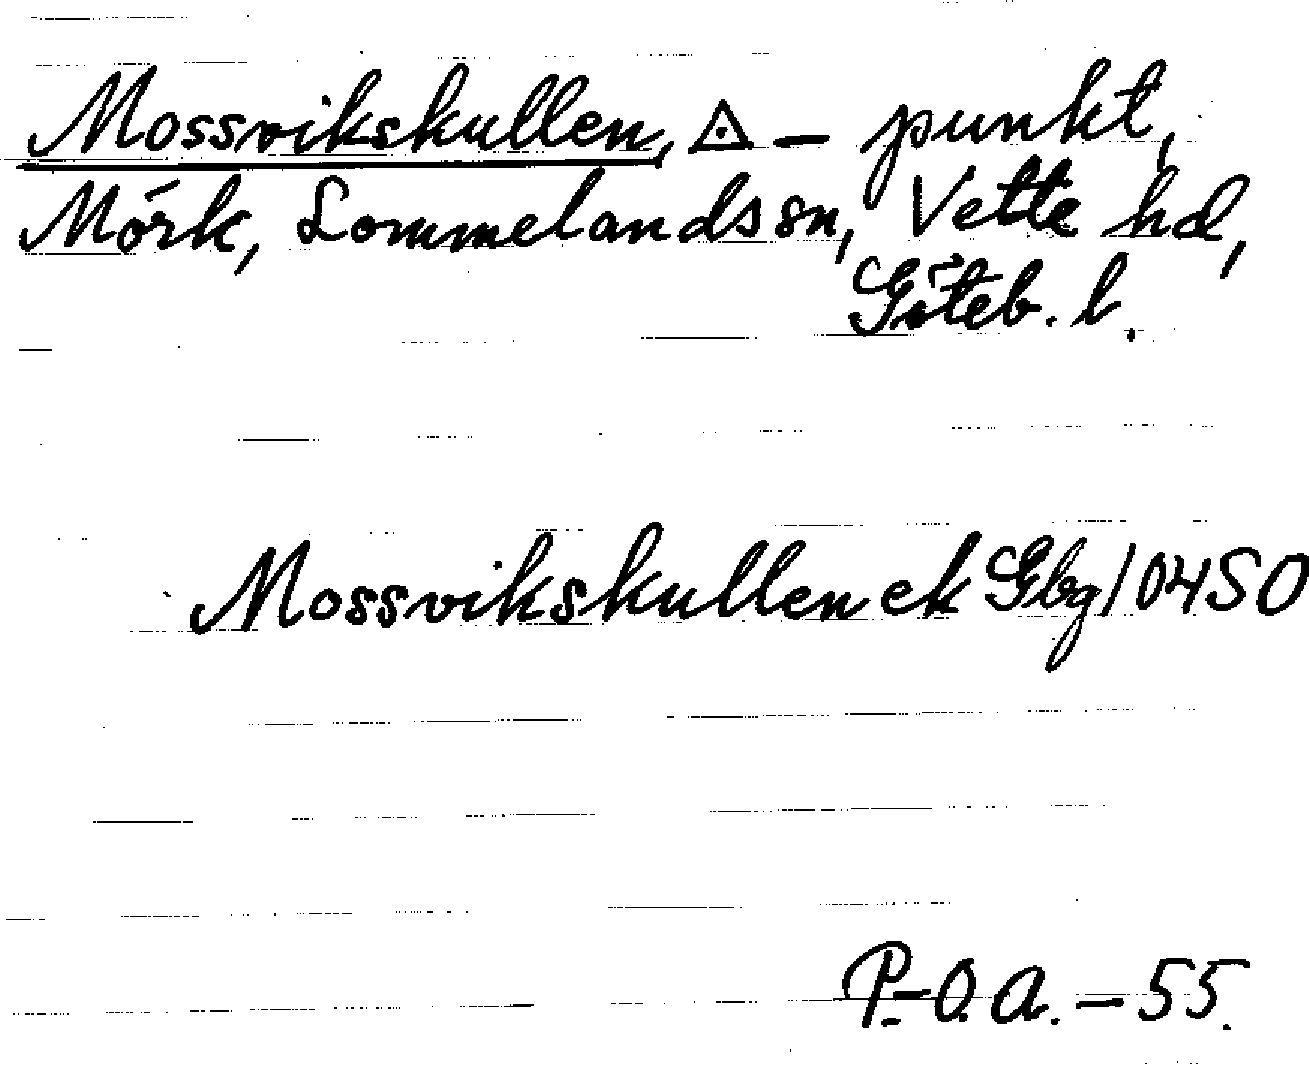 Mossvikskullen, ⟁ - punkt,
Mörk, Lommelands sn, Vette hd,
Göteb. l.
Mossvikskullen ek Gbg/04SO
P.-O. A. - 55.